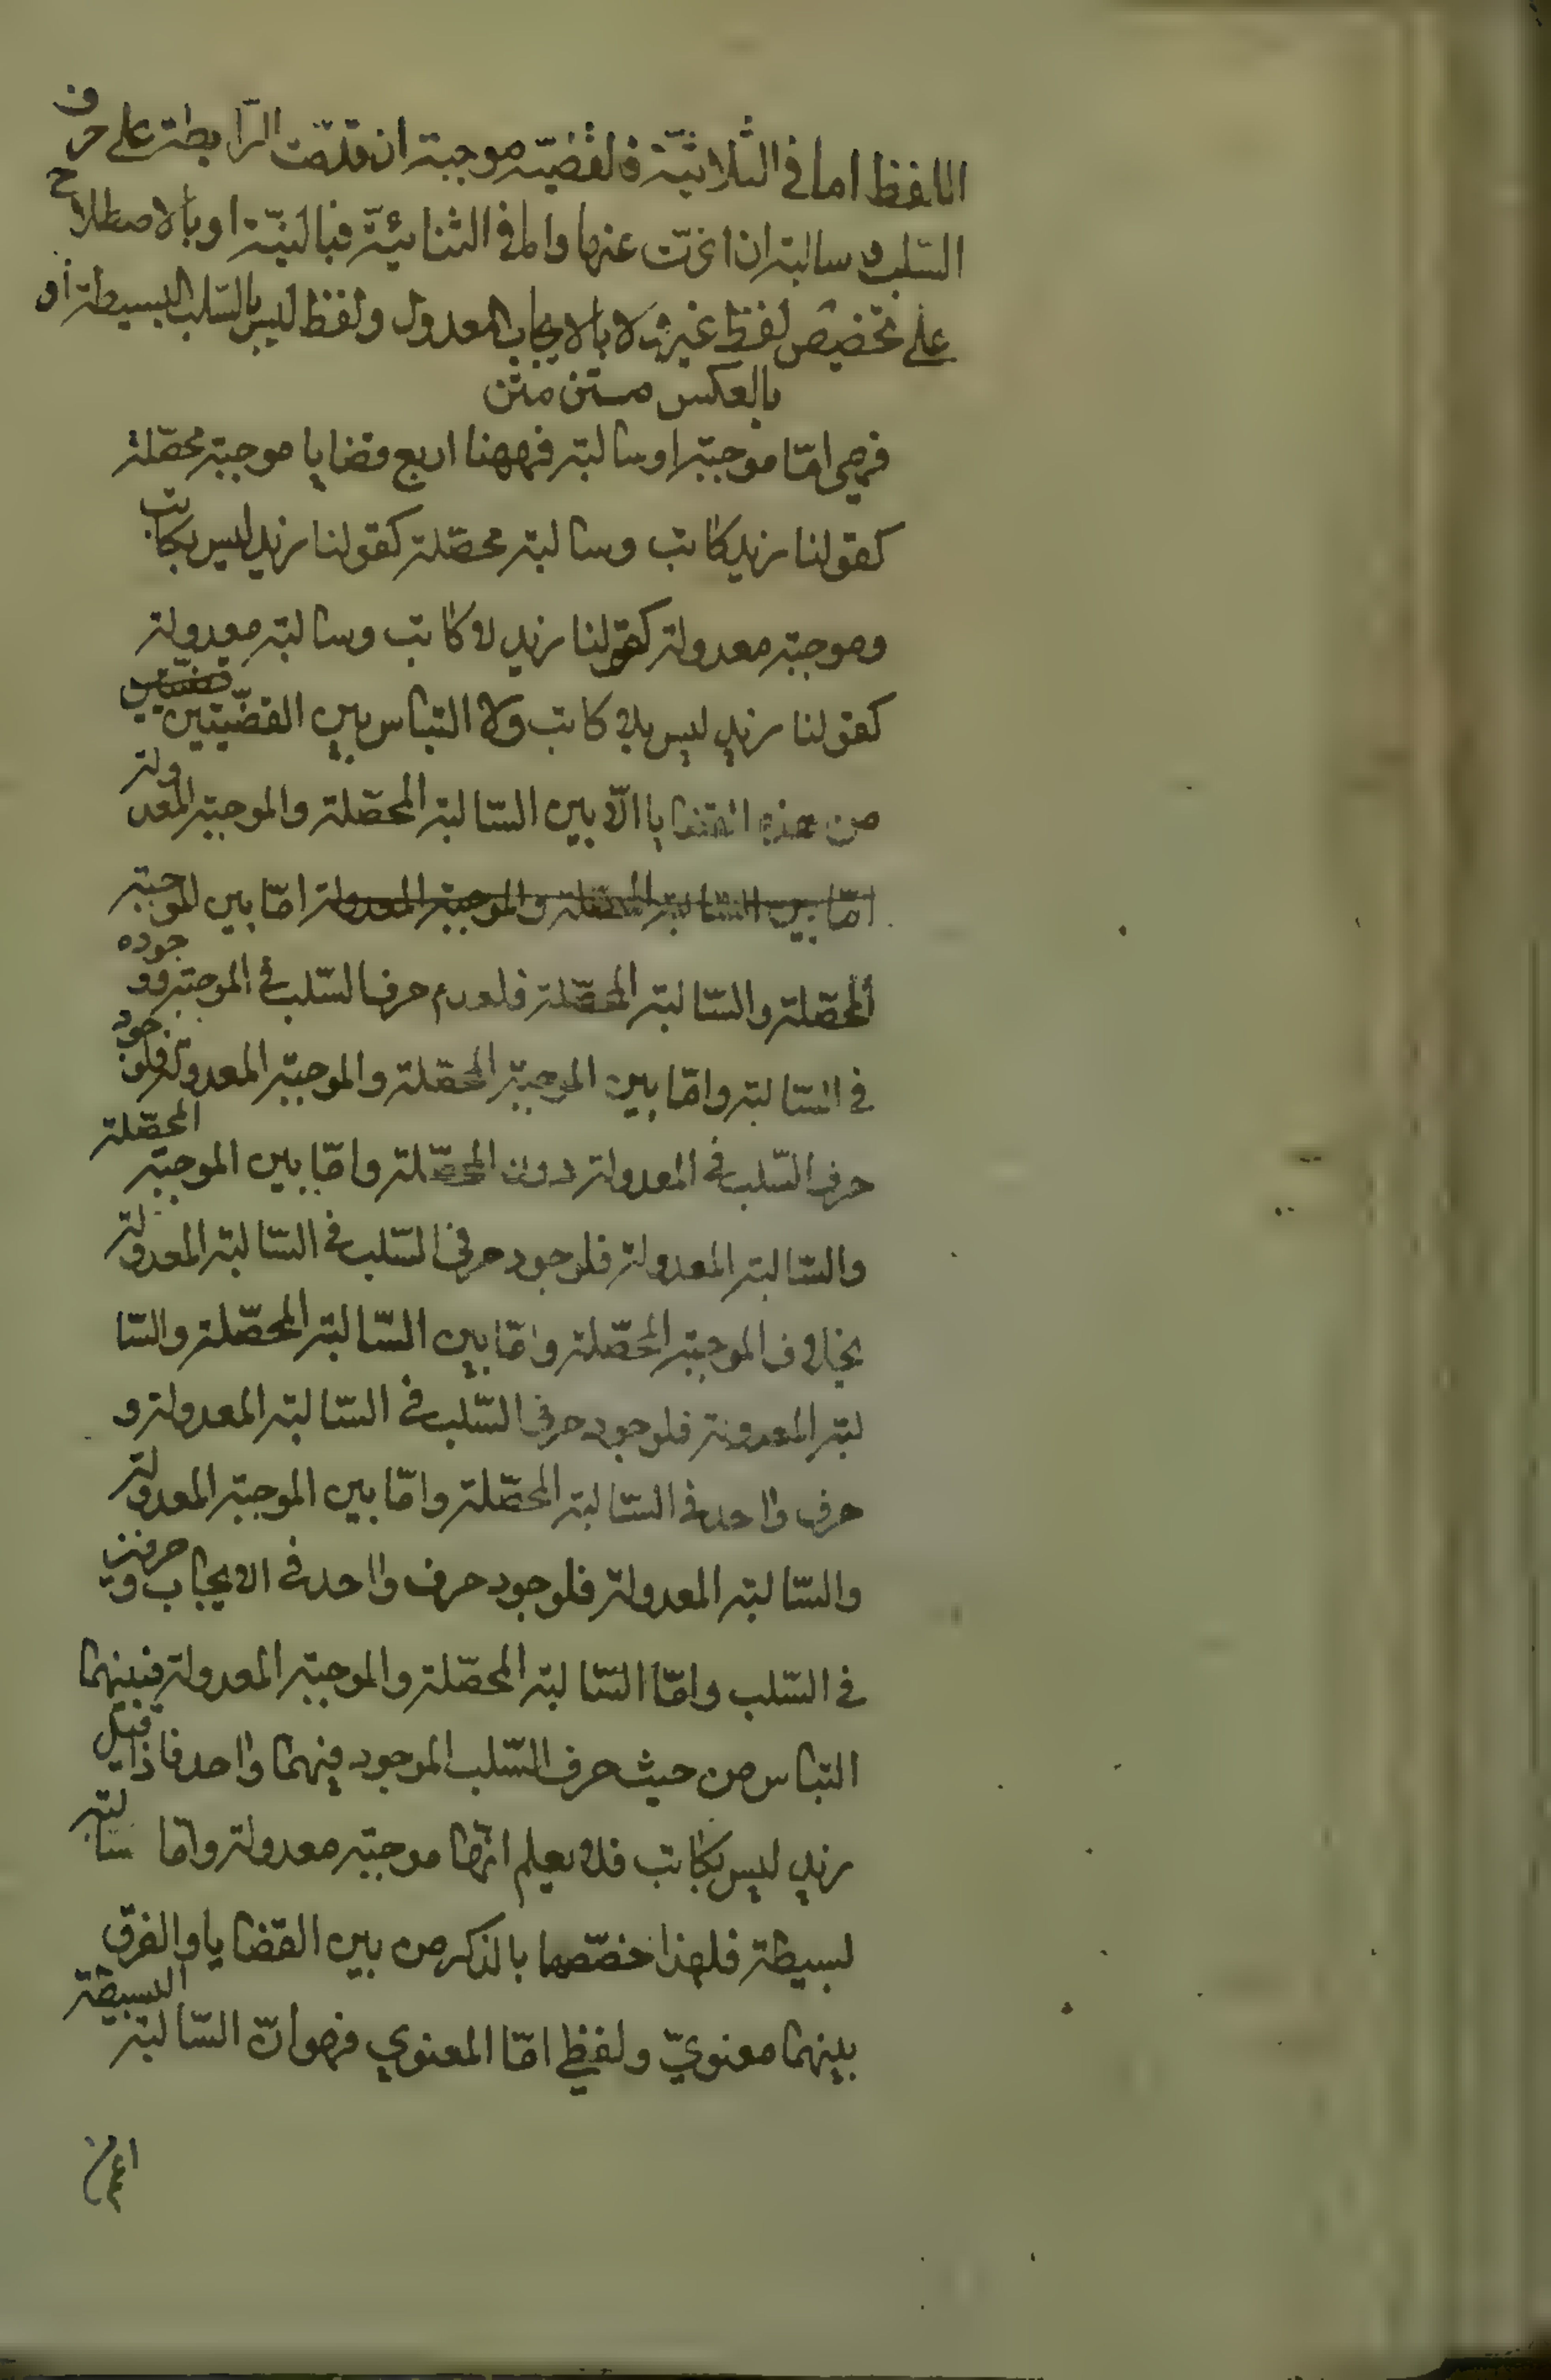 اللفظ اما في الثلاثيّة فالقضيّة موجبة ان قدّمت الرّابطة على حرف
السّلب و سالبة ان اخّرت عنها واما في الثنائيّة فبالنيّة او بالاصطلاح
على تخصيص لفظ غير ولا بالايجاب المعدول ولفظ ليس بالسّلب البسيطة او
بالعكس متن
فهي امّا موجبة او سالبة فههنا اربع قضايا موجبة محصّلة
كقولنا زيد كاتب وسالبة محصّلة كقولنا زيد ليس بكاتب
وموجبة معدولة كقولنا زيد لا كاتب وسالبة معدولة
كقولنا زيد ليس بلا كاتب ولا التباس بين القضيّتين
من هذه القضايا الّا بين السّالبة المحصّلة والموجبة المعدولة
امّا بين السّالبة المحصّلة والموجبة المعدولة امّا بين الموجبة
المحصّلة والسّالبة المحصّلة فلعدم حرف السّلب في الموجبة ووجوده
في السّالبة وامّا بين الموجبة المحصّلة والموجبة المعدولة فلوجود
حرف السّلب في المعدولة دون المحصّلة وامّا بين الموجبة المحصّلة
والسّالبة المعدولة فلوجود حرفي السّلب في السّالبة المعدولة
بخلاف الموجبة المحصّلة وامّا بين السّالبة المحصّلة والسّا
لبة المعدولة فلوجود حرفي السّلب في السّالبة المعدولة و
حرف واحد في السّالبة المحصّلة وامّا بين الموجبة المعدولة
والسّالبة المعدولة فلوجود حرف واحد في الايجاب و حرفين
في السّلب وامّا السّالبة المحصّلة والموجبة المعدولة فبينهما
التباس من حيث حرف السّلب الموجود فيهما واحد فاذا قيل
زيد ليس بكاتب فلا يعلم انّها موجبة معدولة وامّا سالبة
بسيطة فلهذا خصّصهما بالذكر من بين القضايا والفرق
بينهما معنويّ ولفظي امّا المعنوي فهو انّ السّالبة البسيطة
اعم من